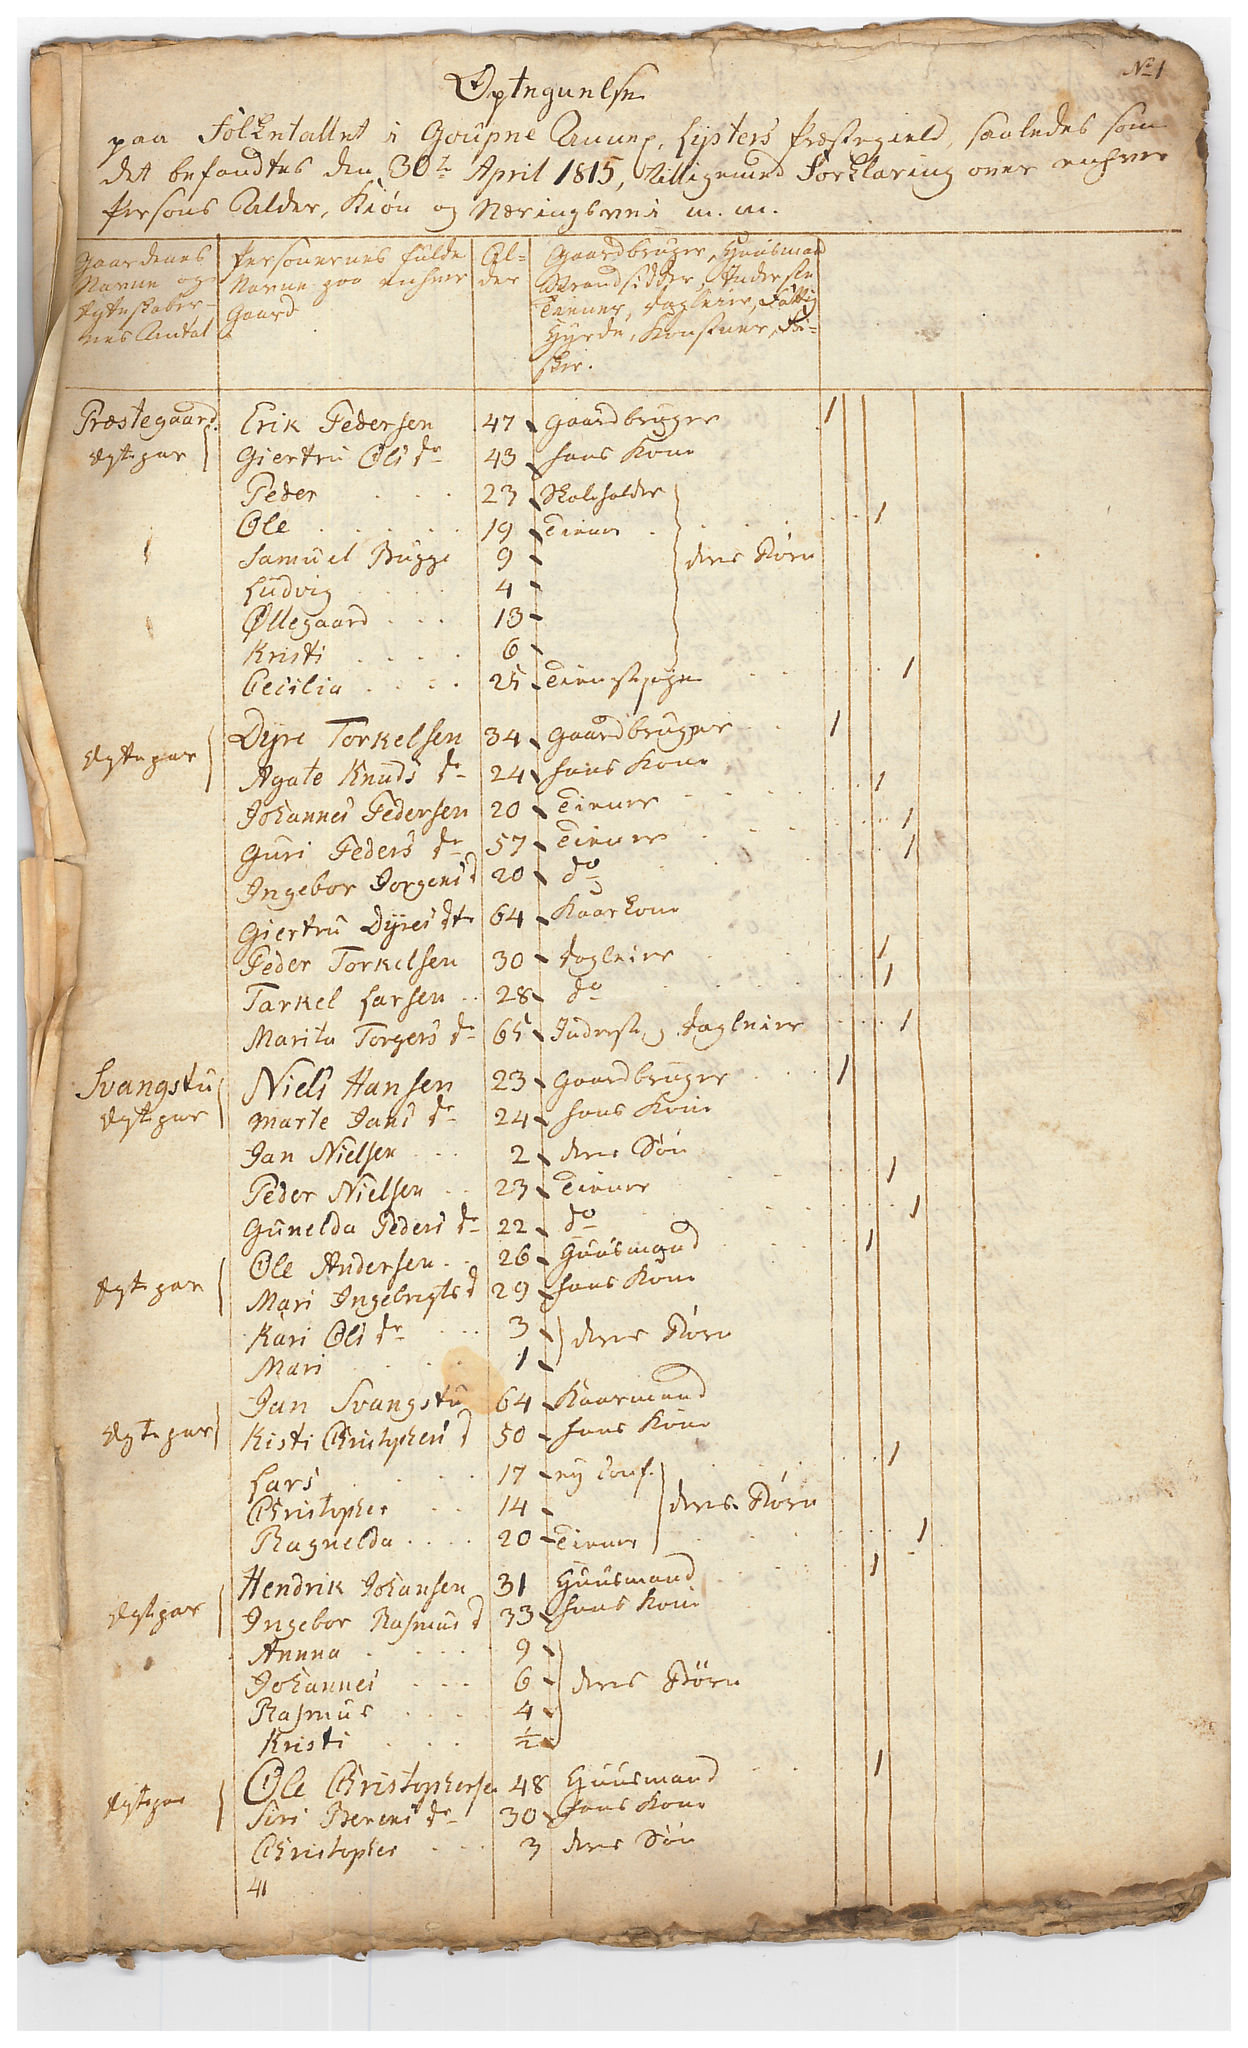 No 1
Optegnelse
paa Folketallet i Goupne Annex, Lysters Præstegield, saaledes som
det befandtes den 30te April 1815, Tilligemed Forklaring over enhver
Persons Alder, Kiøn og Næringsvei m. m.
Gaardenes Navne og Ægteskabernes Antal | Personernes fulde Navne paa enhver Gaard | Alder | Gaardbruger, Huusmand Strandsidder, Inderste Tiener, Dagleier, Fattig Hyrde, Konstner, Fisker.
Præstegaard Erik Pedersen 47 Gaardbruger 1
Ægtepar Giertru Ols dr 43 hans Kone
Peder . . . 23 Skoleholder
Ole . . . . . 19 Tiener . 1
Samuel Bugge 9 deres Børn
Ludvig . . . . 4
Øllegaard . . . 13
Kristi . . . . 6
Cecilia . . . . 25 Tienestepige 1
Ægtepar Dyre Torkelsen 34 Gaardbruger 1
Agate Knuds dr 24 hans Kone
Johannes Pedersen 20 Tiener 1
Guri Peders dr 57 Tiener 1
Ingebor Jorgens d 20 do 1
Giertru Dyres dtr 64 Kaarkone
Peder Torkelsen 30 Dagleier 1
Tarkel Larsen 28 do 1
Marita Torgers dr 65 Inderste, Dagleier 1
Svangstu Niels Hansen 23 Gaardbruger 1
Ægtepar Marte Jans dr 24 hans Kone
Jan Nielsen 2 deres Søn
Peder Nielsen 23 Tiener 1
Gunelda Peders dr 22 do 1
Ole Andersen 26 Huusmand 1
Ægtepar Mari Ingebregts d 29 hans Kone
Kari Ols dr 3 deres Børn
Mari 1
Jan Svangstu 64 Kaarmand
Ægtepar Kisti Christophers d 50 hans Kone
Lars . . . . 17 ny Conf. 1
Christopher 14 deres Børn
Ragnelda . . . . 20 Tiener 1
Hendrik Johansen 31 Huusmand 1
Ægtepar Ingebor Rasmus d 33 hans Kone
Annna . . . . 9
Johannes . . . 6 deres Børn
Rasmus . . . . 4
Kristi . . . . ½
Ole Christophersen 48 Huusmand 1
Ægtepar Siri Berens dr 30 hans Kone
Christopher . . . 3 deres Søn
41